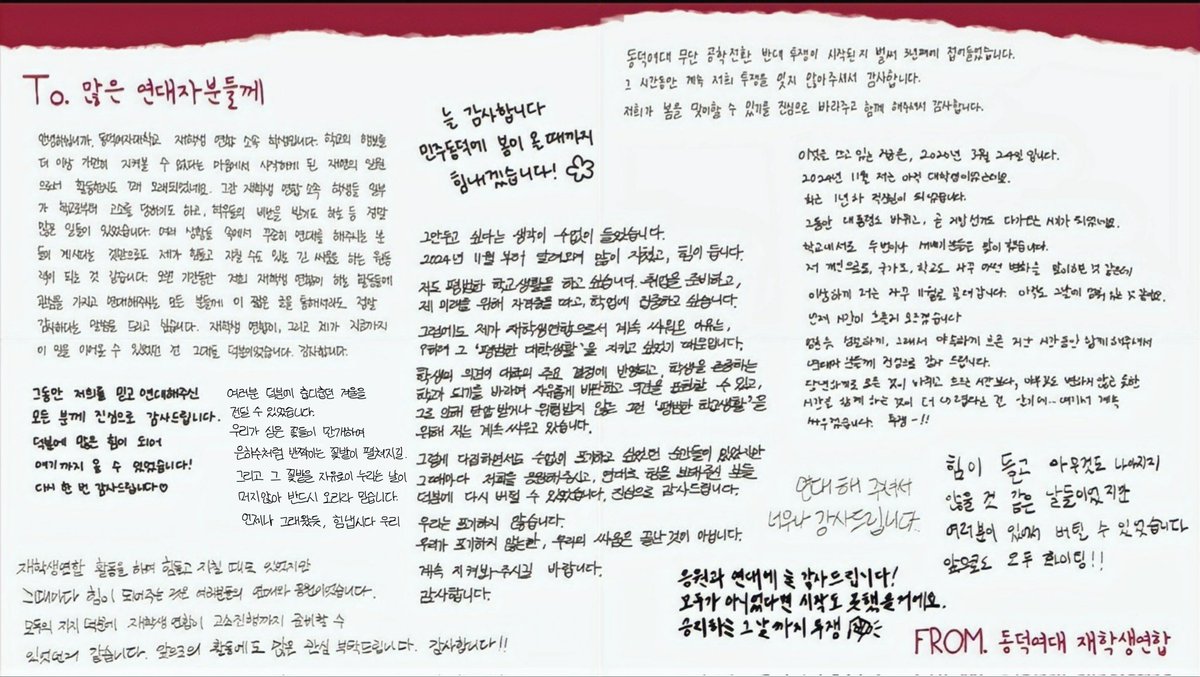 To. 많은 연대자분들께
안녕하십니까, 동덕여자대학교 재학생 연합 소속 학생입니다. 학교의 행보를
더 이상 가만히 지켜볼 수 없다는 마음에서 시작하게 된 재연의 일원
으로서 활동한지도 꽤 오래되었네요. 그간 재학생 연합 소속 학생들 일부
가 학교로부터 고소를 당하기도 하고, 학우들의 비난을 받기도 하는 등 정말
많은 일들이 있었습니다. 여러 상황들 속에서 꾸준히 연대를 해주시는 분
들이 계시다는 것만으로도 제가 힘들고 지칠 수도 있는 긴 싸움을 하는 원동
력이 되는 것 같습니다. 오랜 기간동안 저희 재학생 연합이 하는 활동들에
관심을 가지고 연대해주시는 모든 분들께 이 짧은 글을 통해서라도 정말
감사하다는 말씀을 드리고 싶습니다. 재학생 연합이, 그리고 제가 지금까지
이 일을 이어올 수 있었던 건 그대들 덕분이었습니다. 감사합니다.
그동안 저희를 믿고 연대해주신
모든 분께 진심으로 감사드립니다.
덕분에 많은 힘이 되어
여기까지 올 수 있었습니다!
다시 한 번 감사드립니다♡
여러분 덕분에 춥디춥던 겨울을
견딜 수 있었습니다.
우리가 심은 꽃들이 만개하여
은하수처럼 반짝이는 꽃밭이 펼쳐지길.
그리고 그 꽃밭을 자유로이 누리는 날이
머지않아 반드시 오리라 믿습니다.
언제나 그래왔듯, 힘냅시다 우리
재학생연합 활동을 하며 힘들고 지칠 때도 있었지만
그때마다 힘이 되어주는 것은 여러분들의 연대와 응원이었습니다.
모두의 지지 덕분에 재학생 연합이 고소진행까지 준비할 수
있었던거 같습니다. 앞으로의 활동에도 많은 관심 부탁드립니다. 감사합니다!!
늘 감사합니다
민주동덕에 봄이 올 때까지
힘내겠습니다!
그만두고 싶다는 생각이 수없이 들었습니다.
2024년 11월부터 달려오며 많이 지쳤고, 힘이 듭니다.
저도 평범한 학교생활을 하고 싶습니다. 취업을 준비하고,
제 미래를 위해 자격증을 따고, 학업에 집중하고 싶습니다.
그럼에도 제가 재학생연합으로서 계속 싸워온 이유는,
그 '평범한 대학생활'을 지키고 싶었기 때문입니다.
학생의 의견이 대학의 주요 결정에 반영되고, 학생을 존중하는
학교가 되기를 바라며 자유롭게 비판하고 의견을 표현할 수 있고,
그로 인해 탄압받거나 위협받지 않는 그런 '평범한 학교생활'을
위해 저는 계속 싸우고 있습니다.
그렇게 다짐하면서도 수없이 포기하고 싶었던 순간들이 있었지만
그때마다 저희를 응원해주시고, 연대로 힘을 보태주신 분들
덕분에 다시 버틸 수 있었습니다. 진심으로 감사드립니다.
우리는 포기하지 않습니다.
우리가 포기하지 않는한, 우리의 싸움은 끝난 것이 아닙니다.
계속 지켜봐주시길 바랍니다.
감사합니다.
동덕여대 무단 공학전환 반대 투쟁이 시작된지 벌써 3년째에 접어들었습니다.
그 시간동안 계속 저희 투쟁을 잊지 않아주셔서 감사합니다.
저희가 봄을 맞이할 수 있기를 진심으로 바라주고 함께 해주셔서 감사합니다.
이것을 쓰고 있는 지금은, 2026년 3월 24일입니다.
2024년 11월 저는 아직 대학생이었는데요.
최근 1년차 직장인이 되었습니다.
그동안 대통령도 바뀌고, 곧 지방선거도 다가오는 시기가 되었네요.
학교에서도 두번이나 새내기분들을 맞이 했습니다.
저 개인으로도, 국가도, 학교도 자꾸 어떤 변화를 맞이하는 것 같은데
이상하게 저는 자꾸 11월로 돌아갑니다. 아직도 그날이 멈춰 있는 것 같아요.
언제 시간이 흐를지 모르겠습니다
멈춘듯 섬뜩하게, 그래서 야속하게 흐른 지난 시간동안 함께 해주셔서
연대자 분들께 진심으로 감사 드립니다.
당연하게도 모든 것이 바뀌고 흐르는 시간보다, 아무것도 변하지 않고 멈춘
시간을 함께 하는 것이 더 어렵다는 걸 알기에... 여기서 계속
싸우겠습니다. 투쟁-!!
연대해 주셔서
너무나 감사드립니다.
힘이 들고 아무것도 나아지지
않을 것 같은 날들이었지만
여러분이 있어서 버틸 수 있었습니다
앞으로도 모두 화이팅!!
응원과 연대에 늘 감사드립니다!
모두가 아니었다면 시작도 못했을거에요.
승리하는 그날까지 투쟁
FROM. 동덕여대 재학생연합